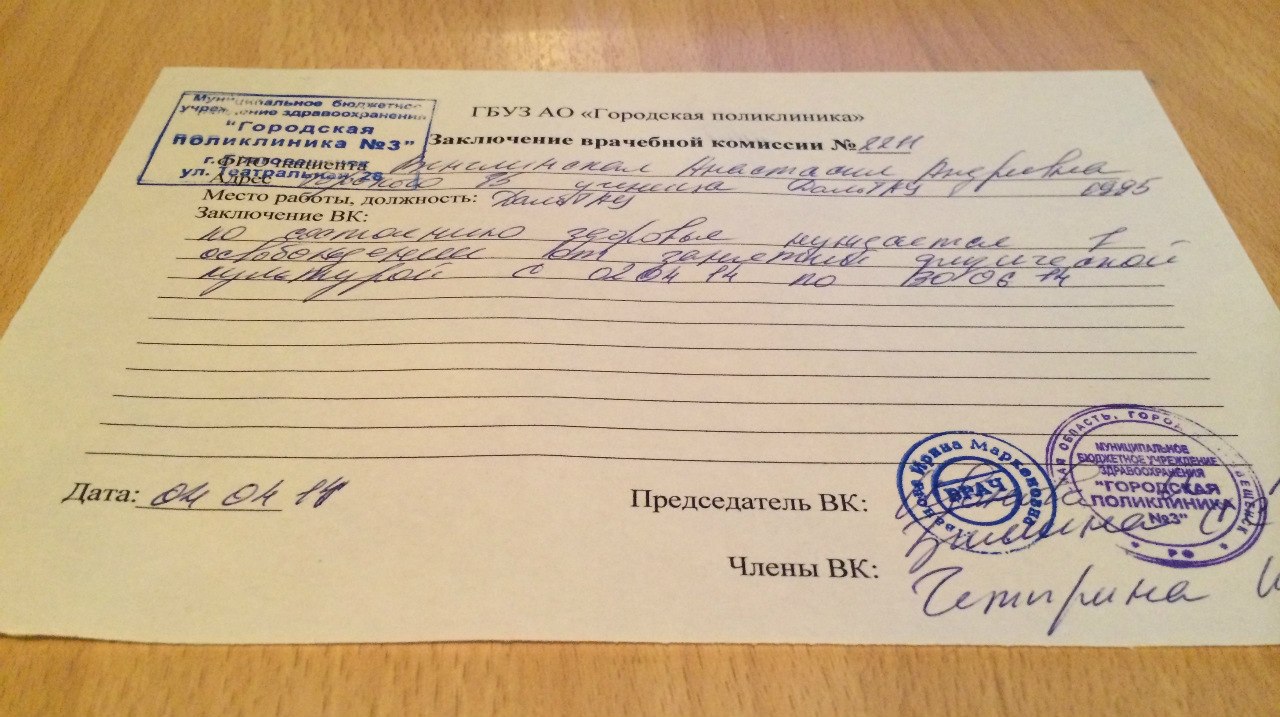 Муниципальное бюджетное
учреждение здравоохранения
"Городская
поликлиника №3"
г. Благовещенск
ул. Театральная 26
ГБУЗ АО «Городская поликлиника»
Заключение врачебной комиссии № 2211
ФИО пациента Анастасия Андреевна
Адрес ученица 1995
Место работы, должность:
Заключение ВК:
по состоянию здоровья нуждается в
освобождении от занятий физической
культурой с 02 04 14 по 30 06 14
Дата: 04 04 14
Председатель ВК:
Члены ВК:
Ирина Марковна
ВРАЧ
МУНИЦИПАЛЬНОЕ
БЮДЖЕТНОЕ УЧРЕЖДЕНИЕ
ЗДРАВООХРАНЕНИЯ
"ГОРОДСКАЯ
ПОЛИКЛИНИКА
№3"
РФ